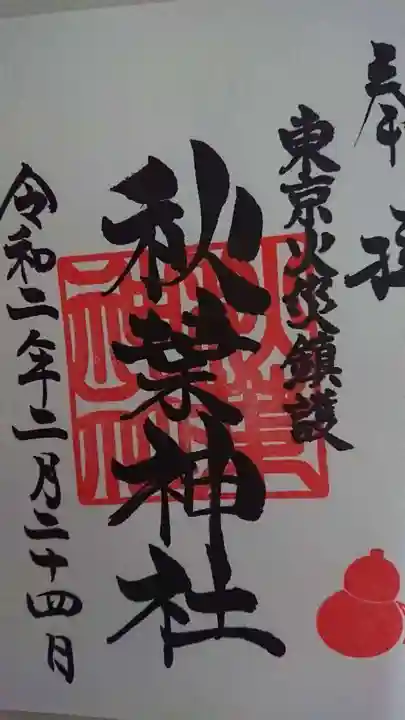 奉拝
東京火災鎮護
秋葉神社
令和二年二月二十四日
秋葉神社